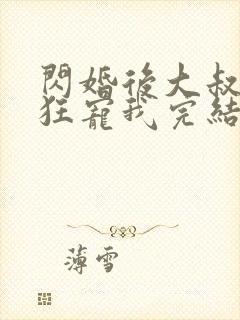 閃婚後大叔
狂寵我完結
薄雪